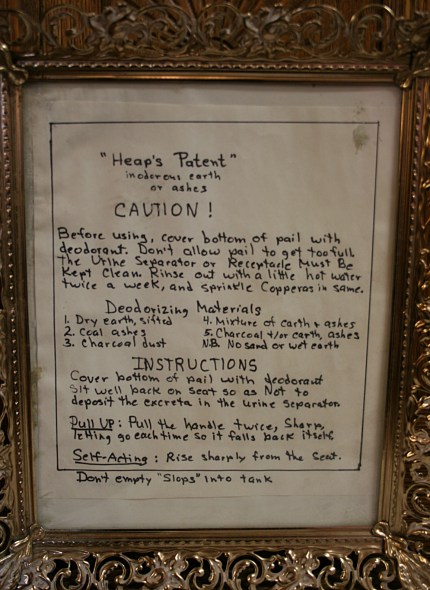 "Heap's Patent"
inodorous earth
or ashes
CAUTION!
Before using, cover bottom of pail with
deodorant. Don't allow pail to get too full
The Urine Separator or Receptacle Must Be
Kept Clean. Rinse out with a little hot water
twice a week, and sprinkle Copperas in same.
Deodorizing Materials
1. Dry earth, sifted
2. Coal ashes
3. Charcoal dust
4. Mixture of earth & ashes
5. Charcoal &/or earth, ashes
N.B. No sand or wet earth
INSTRUCTIONS
Cover bottom of pail with deodorant
Sit well back on seat so as Not to
deposit the excreta in the urine Separator.
Pull UP: Pull the handle twice, Sharp,
letting go each time so it falls back itself.
Self-Acting: Rise sharply from the Seat.
Don't empty "Slops" into tank